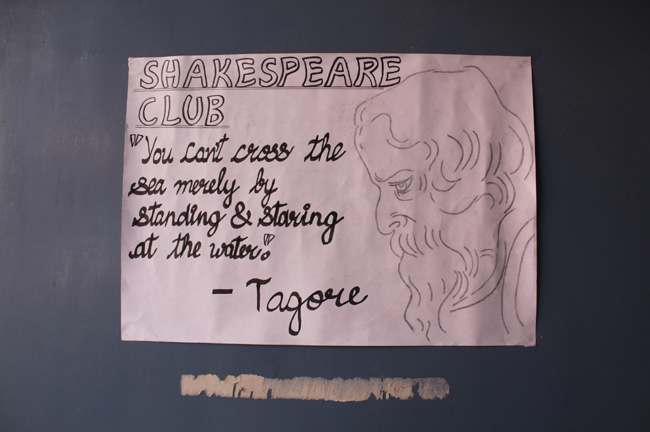 SHAKESPEARE
CLUB
"You can't cross the
sea merely by
standing & staring
at the water."
- Tagore